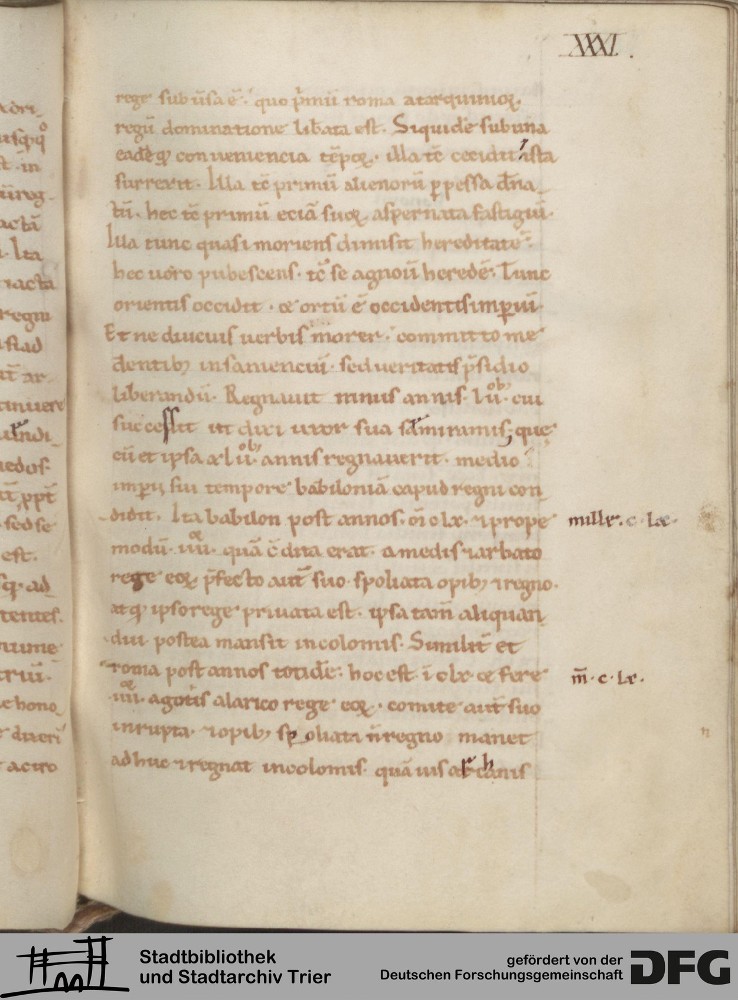 XXXI.
rege sub uersa ē. quo p̄mū roma atarquinioꝝ
regū dominatione lib̄ata est. Siquidē sub una
eadēq; conueniencia tēpoꝝ. illa tc̄ cecidit ista
surrexit. Illa tc̄ primū alienorū ꝑpessa dn̄a
tū. hec tc̄ primū eciā suoꝝ aspernata fastigiū.
Illa tunc quasi moriens dimisit hereditatē.
hec uero pubescens. tc̄ se agnouit heredē. Tunc
orientis occidit. & ortū ē occidentis imꝑiū.
Et ne diucius uerbis morer. committo me
dentib; insanienciū. sed ueritatis p̄sidio
liberandū. Regnauit ninus annis. lii.ob; cui
successit ut dixi uxor sua samiramis; que
cū et ipsa xlii.ob; annis regnauerit. medio
imperii sui tempore babiloniā capud regni con
didit. Ita babilon post annos. m̄ c lx. ⁊ prope
modū. iiii. quā c̄dita erat. a medis ⁊ arbato
rege eoꝝ p̄fecto aut̄ suo. spoliata opib; ⁊ regno.
atq; ipso rege priuata est. ipsa tam̄ aliquan
diu postea mansit incolomis. Similit̄ et
roma post annos totidē. hoc est. ī c lx. & fere
iiii. agotis alarico rege eoꝝ. comite aut̄ suo
inrupta. ⁊ opib; spoliata n̄ regno manet
adhuc ⁊ regnat incolomis. quāuis archanis
mille. c. lx.
m̄. c. lx.
Stadtbibliothek
und Stadtarchiv Trier
gefördert von der
Deutschen Forschungsgemeinschaft
DFG